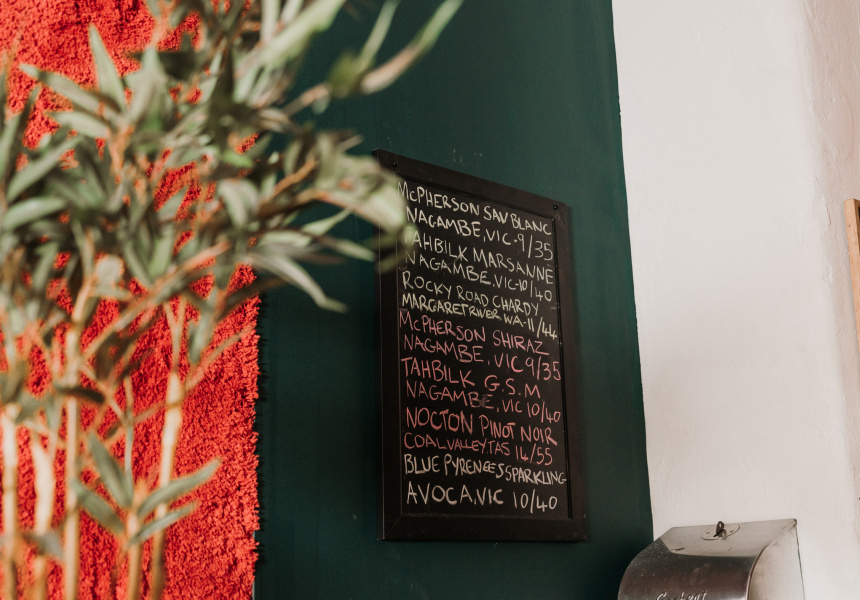 McPHERSON SAV BLANC
NAGAMBE, VIC-9/35
TAHBILK MARSANNE
NAGAMBE, VIC-10/40
ROCKY ROAD CHARDY
MARGARET RIVER WA-11/44
McPHERSON SHIRAZ
NAGAMBE, VIC 9/35
TAHBILK G.S.M
NAGAMBE, VIC 10/40
NOCTON PINOT NOIR
COAL VALLEY, TAS 14/55
BLUE PYRENEES SPARKLING
AVOCA, VIC 10/40